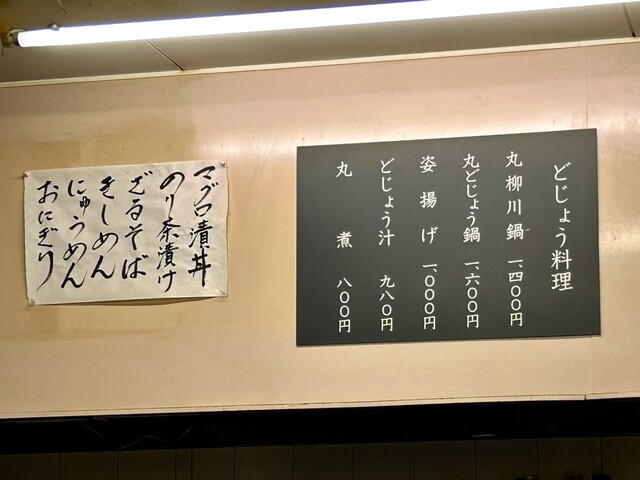 どじょう料理
丸柳川鍋 一、四〇〇円
丸どじょう鍋 一、六〇〇円
姿揚げ 一、〇〇〇円
どじょう汁 九八〇円
丸煮 八〇〇円
マグロ漬丼
のり茶漬け
ざるそば
きしめん
にゅうめん
おにぎり